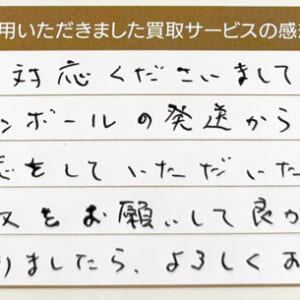 用いただきました買取サービスの感
対応くださいまして
ンボールの発送から
をしていただいた
をお願いして良か
りましたら、よろしくお